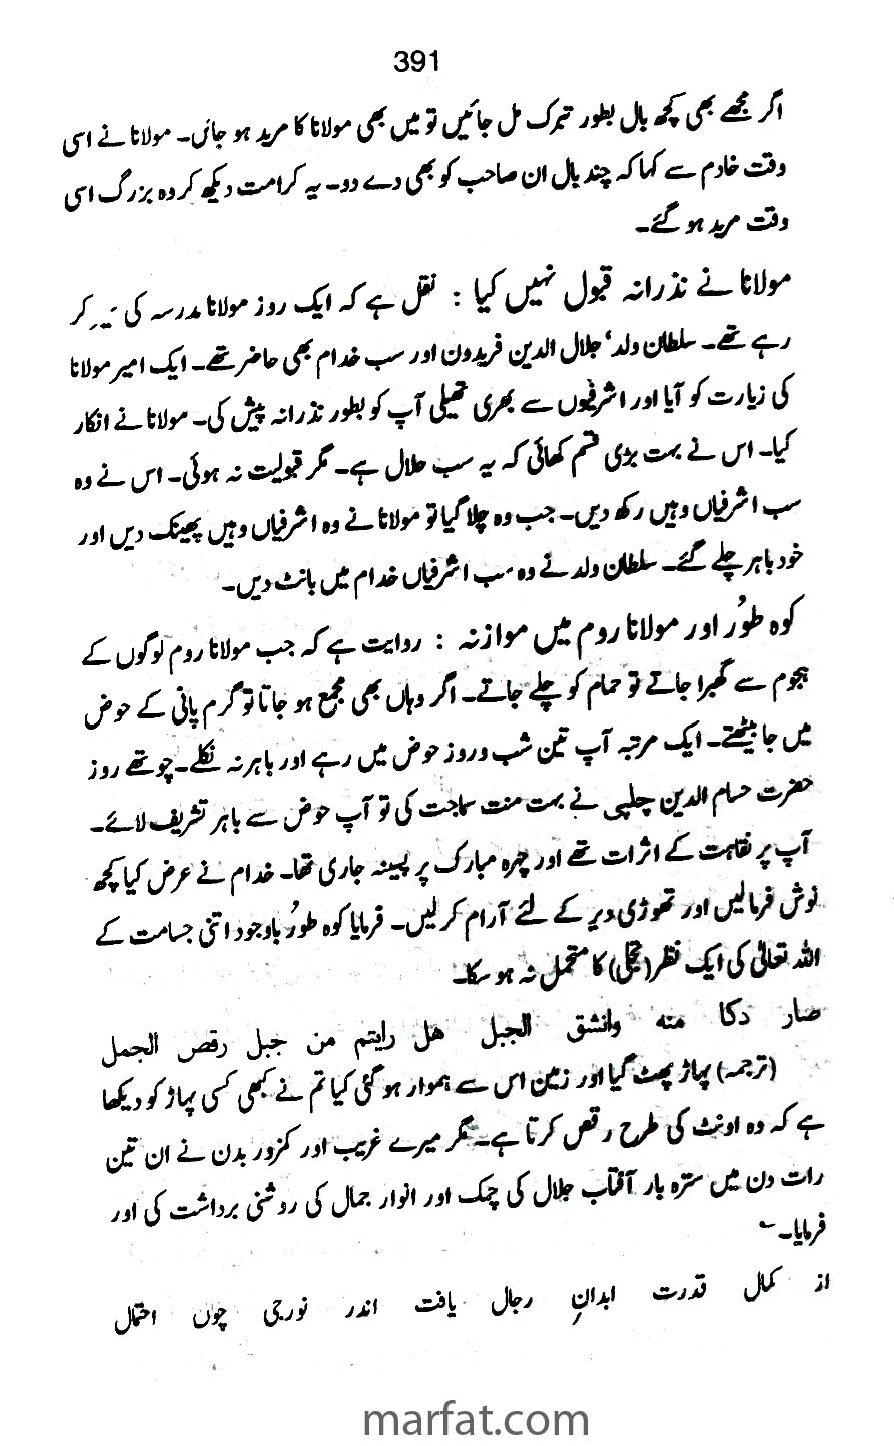 391
اگر مجھے بھی کچھ بال بطور تبرک مل جائیں تو میں بھی مولانا کا مرید ہو جاں۔ مولانا نے اسی
وقت خادم سے کہا کہ چند بال ان صاحب کو بھی دے دو۔ یہ کرامت دیکھ کر وہ بزرگ اسی
وقت مرید ہو گئے۔
مولانا نے نذرانہ قبول نہیں کیا : نقل ہے کہ ایک روز مولانا مدرسہ کی کر
رہے تھے۔ سلطان ولد، جلال الدین فریدون اور سب خدام بھی حاضر تھے۔ ایک امیر مولانا
کی زیارت کو آیا اور اشرفیوں سے بھری تھیلی آپ کو بطور نذرانہ پیش کی۔ مولانا نے انکار
کیا۔ اس نے بہت بڑی قسم کھائی کہ یہ سب حلال ہے۔ مگر قبولیت نہ ہوئی۔ اس نے وہ
سب اشرفیاں وہیں رکھ دیں۔ جب وہ چلا گیا تو مولانا نے وہ اشرفیاں وہیں پھینک دیں اور
خود باہر چلے گئے۔ سلطان ولد نے وہ سب اشرفیاں خدام میں بانٹ دیں۔
کوہ طوُر اور مولانا روم میں موازنہ : روایت ہے کہ جب مولانا روم لوگوں کے
ہجوم سے گھبرا جاتے تو حمام کو چلے جاتے۔ اگر وہاں بھی مجمع ہو جاتا تو گرم پانی کے حوض
میں جا بیٹھتے۔ ایک مرتبہ آپ تین شب و روز حوض میں رہے اور باہر نہ نکلے۔ چوتھے روز
حضرت حسام الدین چلپی نے بہت منت سماجت کی تو آپ حوض سے باہر تشریف لائے۔
آپ پر نقاہت کے اثرات تھے اور چہرہ مبارک پر پسینہ جاری تھا۔ خدام نے عرض کیا کچھ
نوش فرمالیں اور تھوڑی دیر کے لئے آرام کر لیں۔ فرمایا کوہ طوُر باوجود اتنی جسامت کے
اللہ تعالیٰ کی ایک نظر (تجلی) کا متحمل نہ ہو سکا۔
صار دکا منه وانشق الجبل هل رایتم من جبل رقص الجمل
(ترجمہ) پہاڑ پھٹ گیا اور زمین اس سے ہموار ہو گئی کیا تم نے کبھی کسی پہاڑ کو دیکھا
ہے کہ وہ اونٹ کی طرح رقص کرتا ہے۔ مگر میرے غریب اور کمزور بدن نے ان تین
رات دن میں سترہ بار آفتاب جلال کی چمک اور انوار جمال کی روشنی برداشت کی اور
فرمایا۔
از کمال قدرت ابدانِ رجال یافت اندر نورجی چوں احتمال
marfat.com